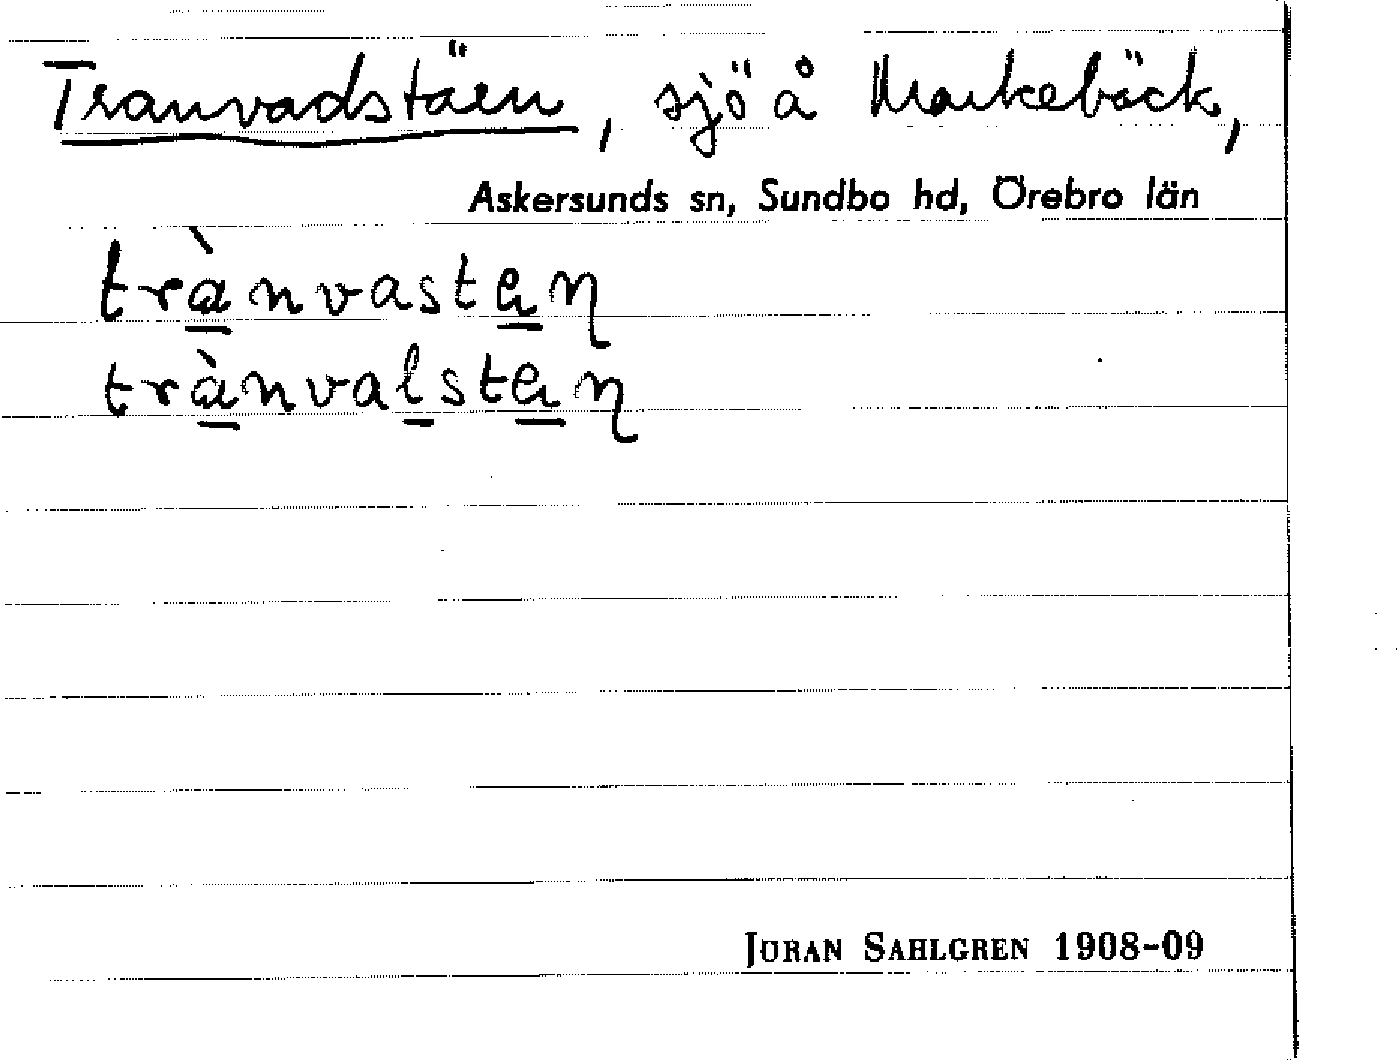 Tranvadstäen, sjö å Markebäck,
Askersunds sn, Sundbo hd, Örebro län
trànvastan
trànvalstan
JÖRAN SAHLGREN 1908-09